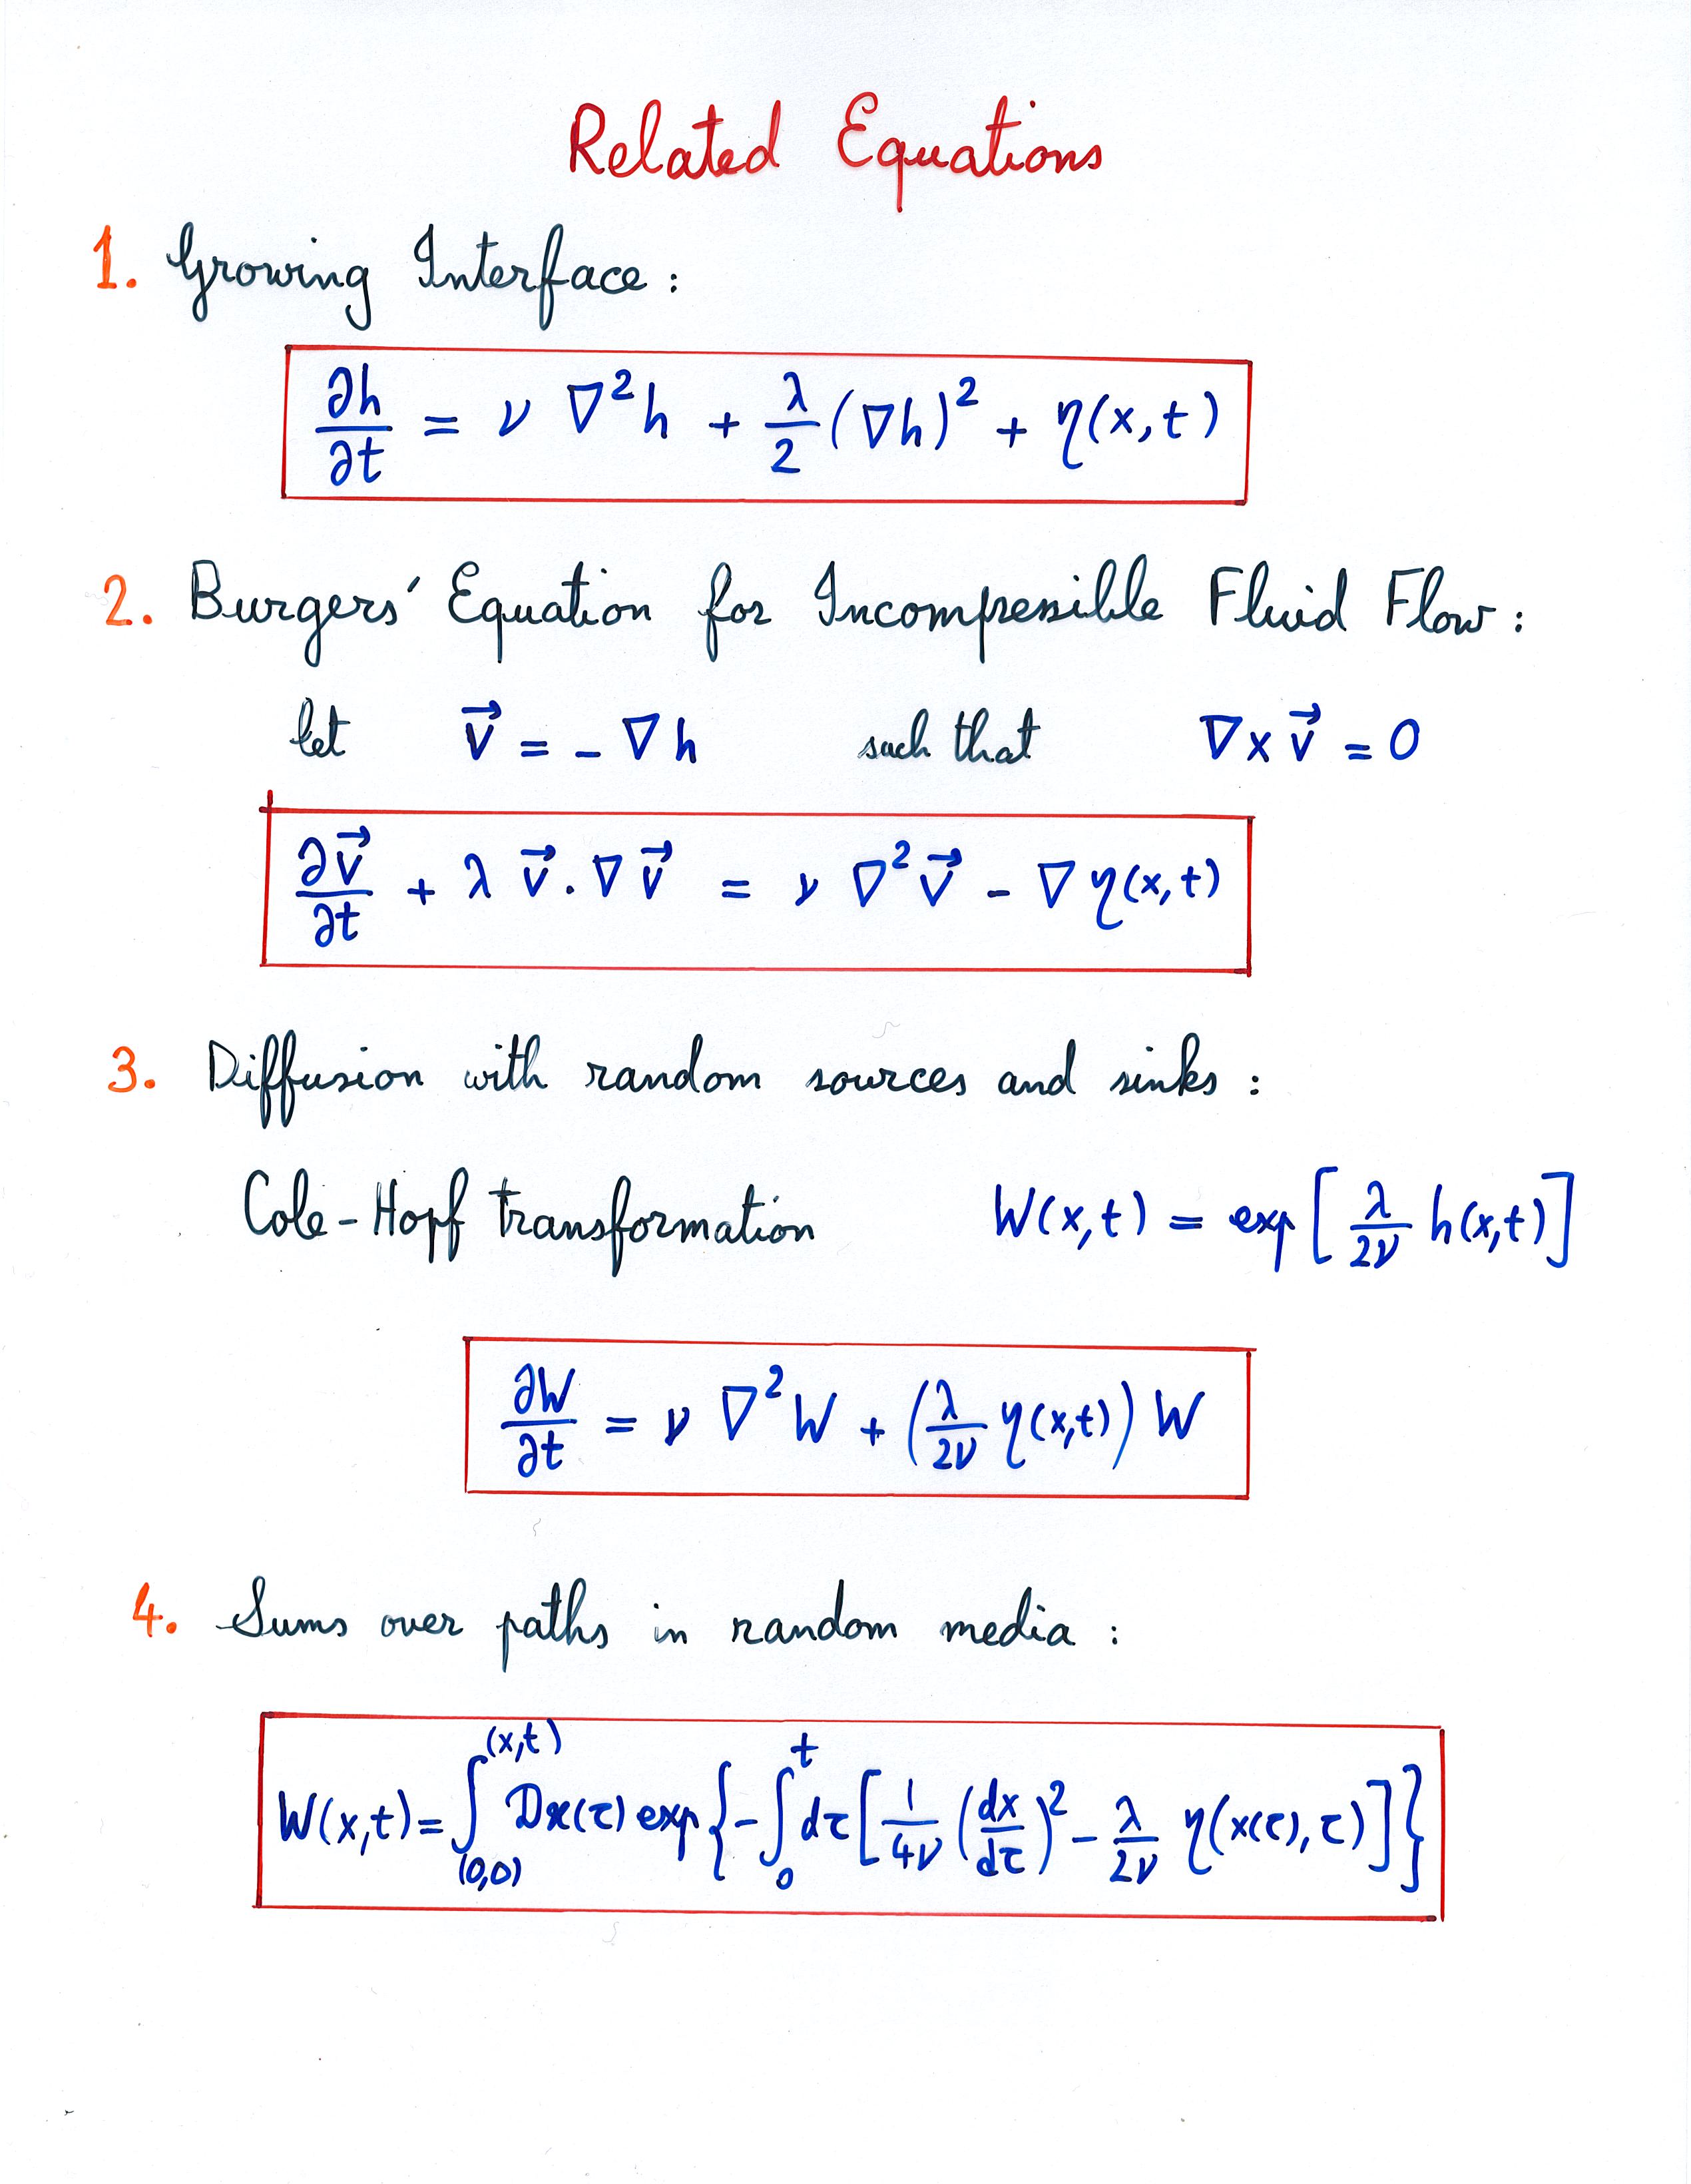 Related Equations
1. Growing Interface :
∂h/∂t = ν ∇²h + λ/2 (∇h)² + η(x,t)
2. Burgers' Equation for Incompressible Fluid Flow :
let v⃗ = - ∇h such that ∇×v⃗ = 0
∂v⃗/∂t + λ v⃗.∇v⃗ = ν ∇²v⃗ - ∇η(x,t)
3. Diffusion with random sources and sinks :
Cole-Hopf transformation W(x,t) = exp[λ/2ν h(x,t)]
∂W/∂t = ν ∇²W + (λ/2ν η(x,t)) W
4. Sums over paths in random media :
W(x,t) = ∫_(0,0)^(x,t) Dx(τ) exp{-∫_0^t dτ[1/4ν (dx/dτ)² - λ/2ν η(x(τ),τ)]}